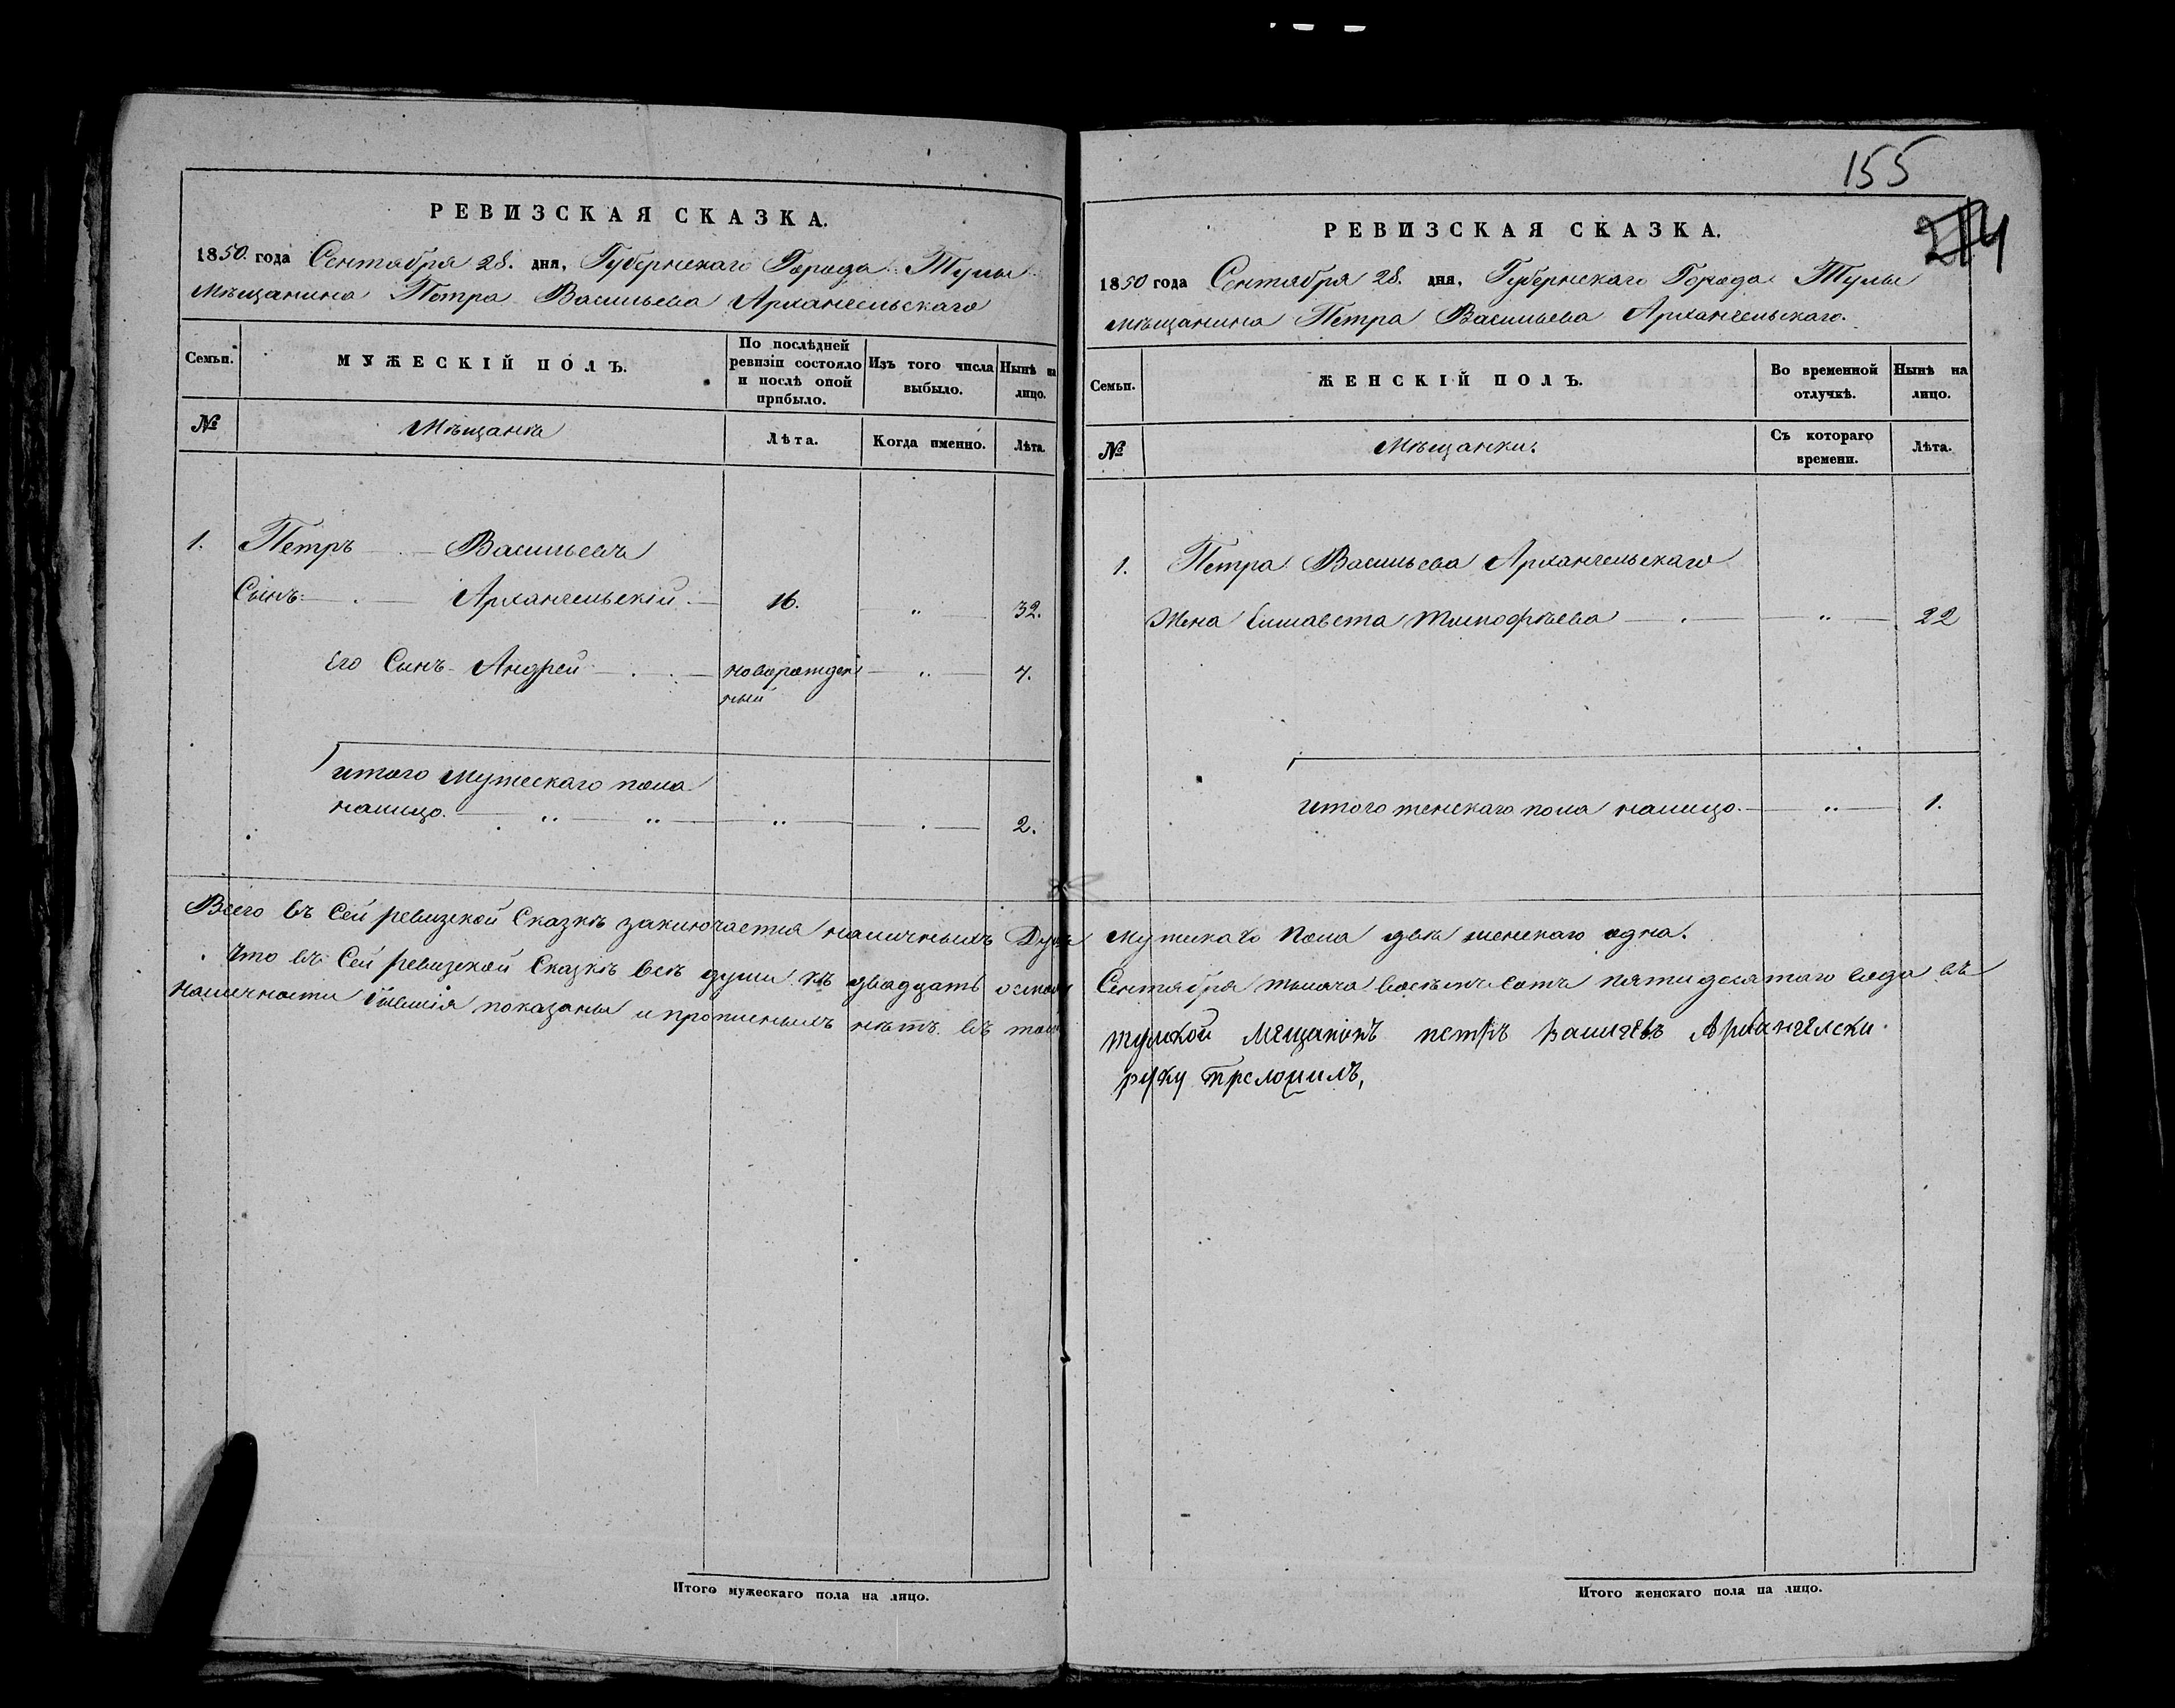 РЕВИЗСКАЯ СКАЗКА.
1850 года Сентября 28. дня, Губернскаго Города Тулы
Мѣщанина Петра Васильева Архангельскаго
Семьи.
МУЖЕСКІЙ ПОЛЪ.
По послѣдней ревизіи состояло и послѣ оной прибыло.
Изъ того числа выбыло.
Нынѣ на лицо.
№
Мѣщанѣ
Лѣта.
Когда именно.
Лѣта.
1. Петръ Васильевъ
Сынъ Архангельскій 16. " 32.
его Сынъ Андрей новорожден " 7.
ный
итого мужескаго пола
налицо. " " " 2.
Всего въ Сей ревизской Сказкѣ заключается наличныхъ Душъ
Что въ Сей ревизской Сказкѣ всѣ души къ двадцать осмому
наличности бывшія показаны и прописныхъ нѣтъ въ том
Итого мужескаго пола на лицо.
155
214
РЕВИЗСКАЯ СКАЗКА.
1850 года Сентября 28. дня, Губернскаго Города Тулы
мѣщанина Петра Васильева Архангельскаго.
Семьи.
ЖЕНСКІЙ ПОЛЪ.
Во временной отлучкѣ.
Нынѣ на лицо.
№
Мѣщанки.
Съ котораго времени.
Лѣта.
1. Петра Васильева Архангельскаго
Жена Елисавета Тимофѣева " 22
итого женскаго пола налицо. " 1.
мужскаго пола двѣ женскаго одна.
Сентября тысяча восѣмъ сотъ пятидесятаго года въ
тулской мещанинъ петръ Василевъ Архангелски
руку преложилъ,
Итого женскаго пола на лицо.